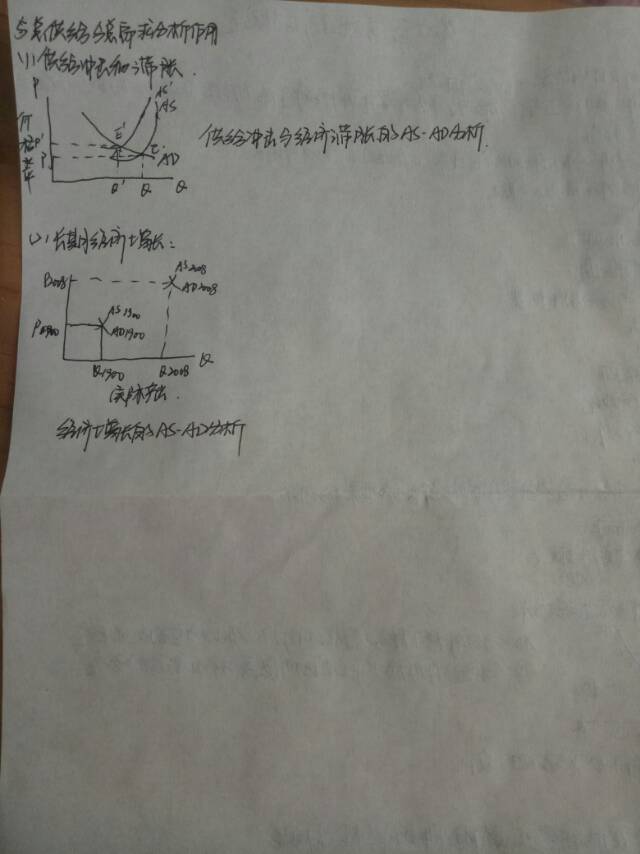 5总供给与总需求分析作用
(1)供给冲击和滞胀.
P
AS'
AS
价格水平
P'
P
E'
E
AD
Q'
Q
Q
供给冲击与经济滞胀的AS-AD分析.
(2)长期经济增长:
P2008
AS2008
AD2008
P1900
AS1900
AD1900
Q1900
Q2008
Q
实际产出.
经济增长的AS-AD分析